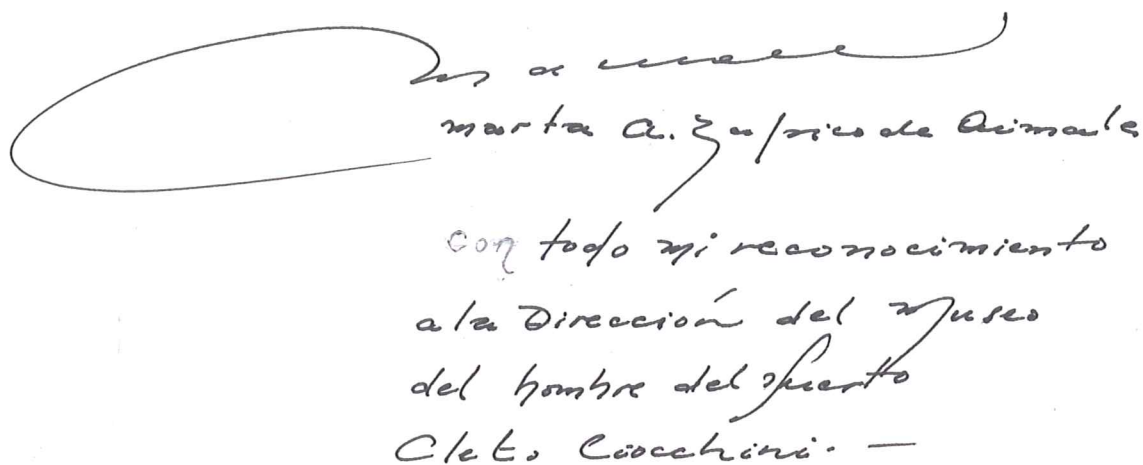 Marta A. Zu de
con todo mi reconocimiento
a la Dirección del Museo
del hombre del Puerto
Cleto Ciocchini. —